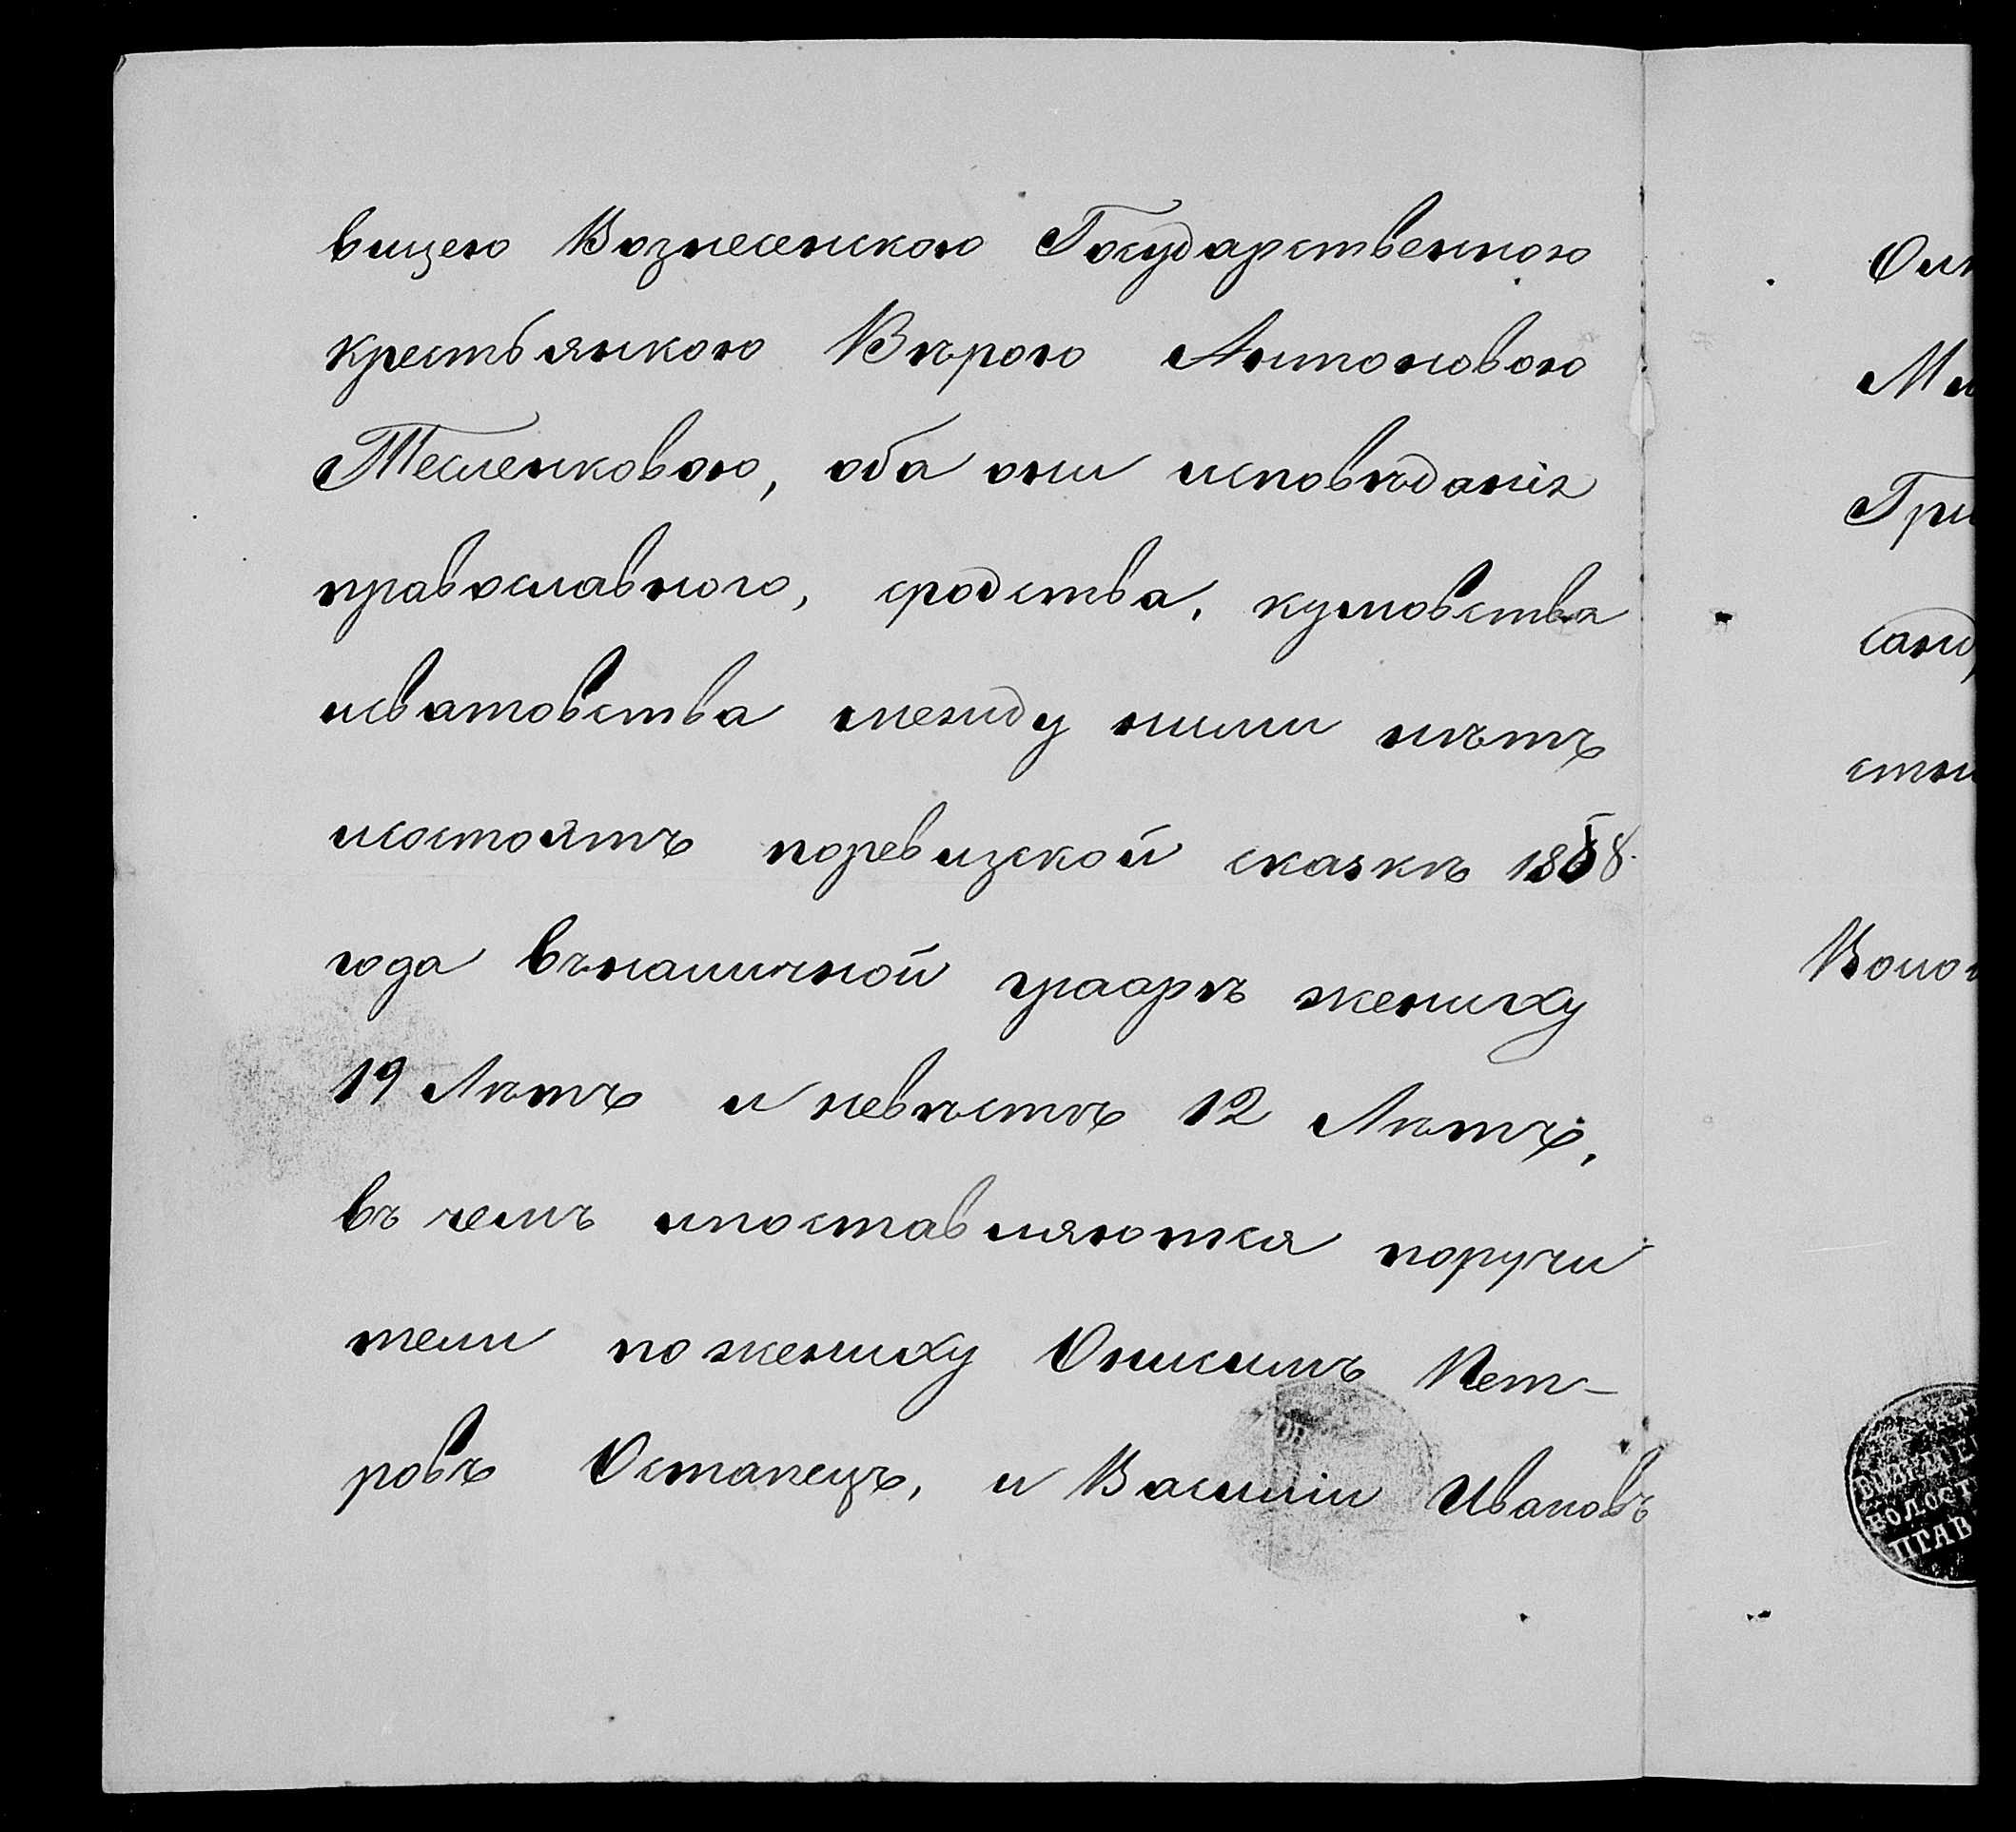 вицею Вознесенскою Государственною
крестьянкою Вѣрою Антоновою
Тесленковою, оба они исповѣданія
православного, сродства, кумовства
исватовства между ними нѣтъ
исостоятъ поревизской сказкѣ 1858
года въналичной графѣ жениху
19 Лѣтъ и невѣстѣ 12 Лѣтъ,
въ чемъ ипоставляются поручи
тели по жениху Онисимъ Пет-
ровъ Остапецъ, и Василіи Ивановъ
Гри
санд
Воло
ВОЛОСТ
ПРАВ